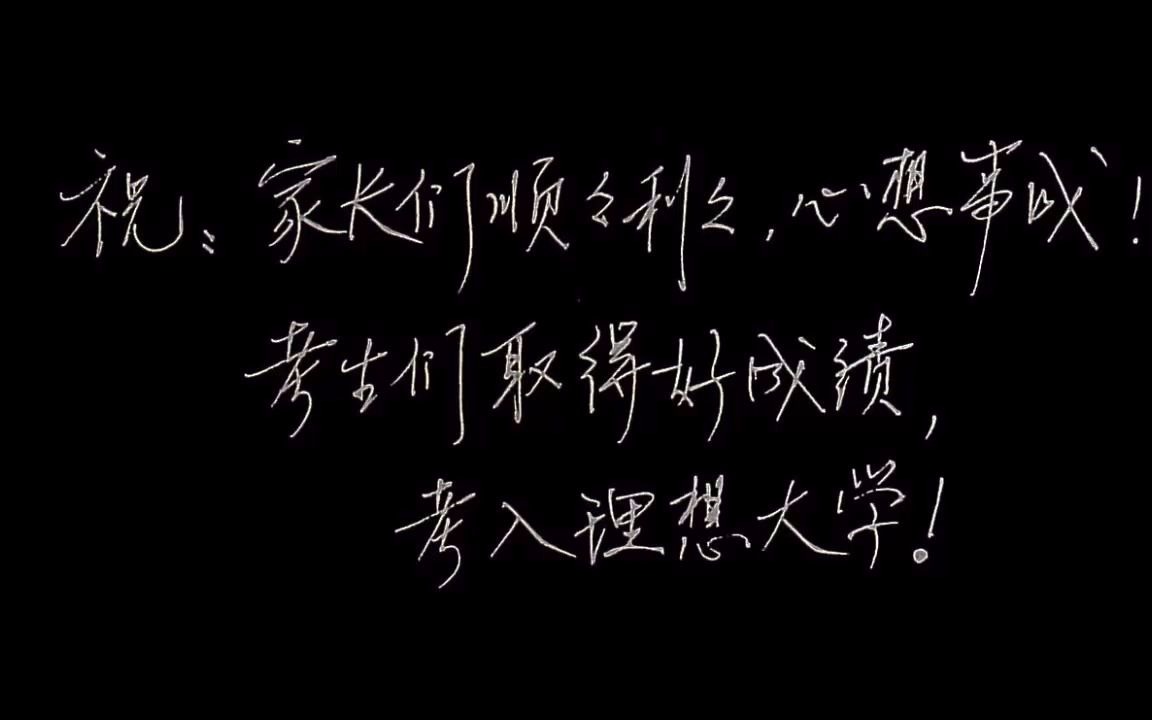 祝：家长们顺々利々，心想事成！
考生们取得好成绩，
考入理想大学！